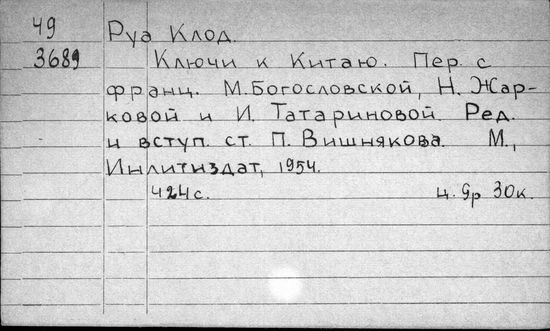 49 Руа Клод.
3689 Ключи к Китаю. Пер. с
франц. М. Богословской, Н. Жар-
ковой и И. Татариновой. Ред.
и вступ. ст. П. Вишнякова. М.,
Инлитиздат, 1954.
424 с. ц. 9р 30к.